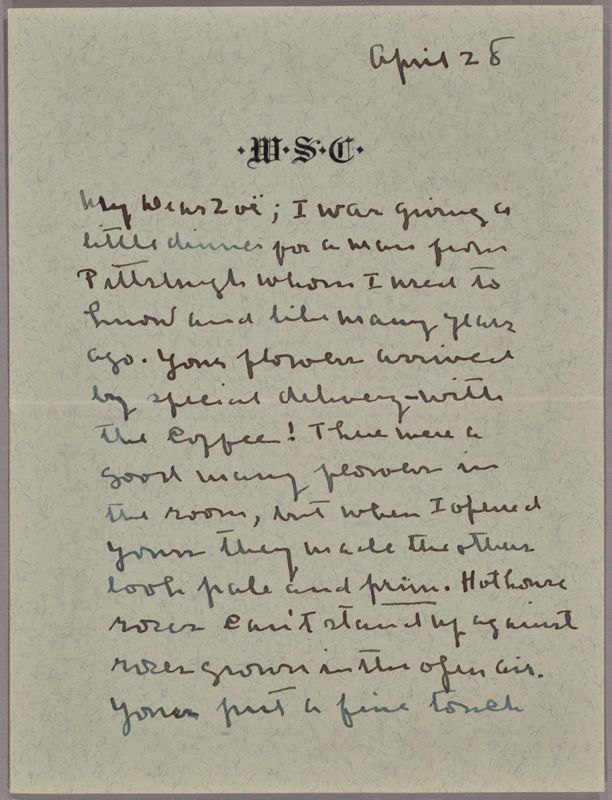 April 28
·W·S·C·
My Dear Zoë; I was giving a
little dinner for a man from
Pittsburgh whom I used to
know and like many years
ago. Your flowers arrived
by special delivery - with
the coffee! There were a
good many flowers in
the room, but when I opened
yours they made the others
look pale and prim. Hothouse
roses can't stand up against
roses grown in the open air.
Yours put a fine touch